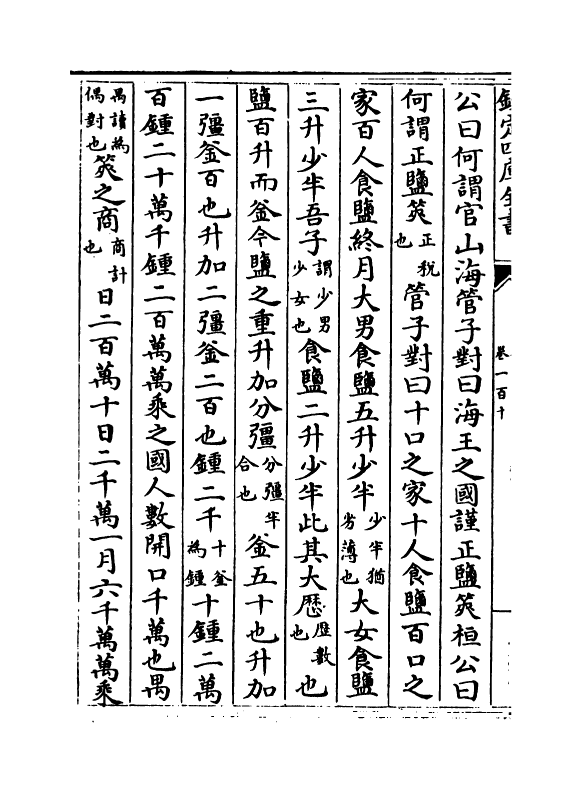 欽定四庫全書
卷一百十
公曰何謂官山海管子對曰海王之國謹正鹽筴桓公曰
何謂正鹽筴正税也管子對曰十口之家十人食鹽百口之
家百人食鹽終月大男食鹽五升少半少半猶劣薄也大女食鹽
三升少半吾子謂少男少女也食鹽二升少半此其大歴歴數也也
鹽百升而釜今鹽之重升加分彊分彊半合也釜五十也升加
一彊釜百也升加二彊釜二百也鍾二千十釜為鍾十鍾二萬
百鍾二十萬千鍾二百萬萬乘之國人數開口千萬也禺
禺讀為偶偶對也筴之商商計也日二百萬十日二千萬一月六千萬萬乘